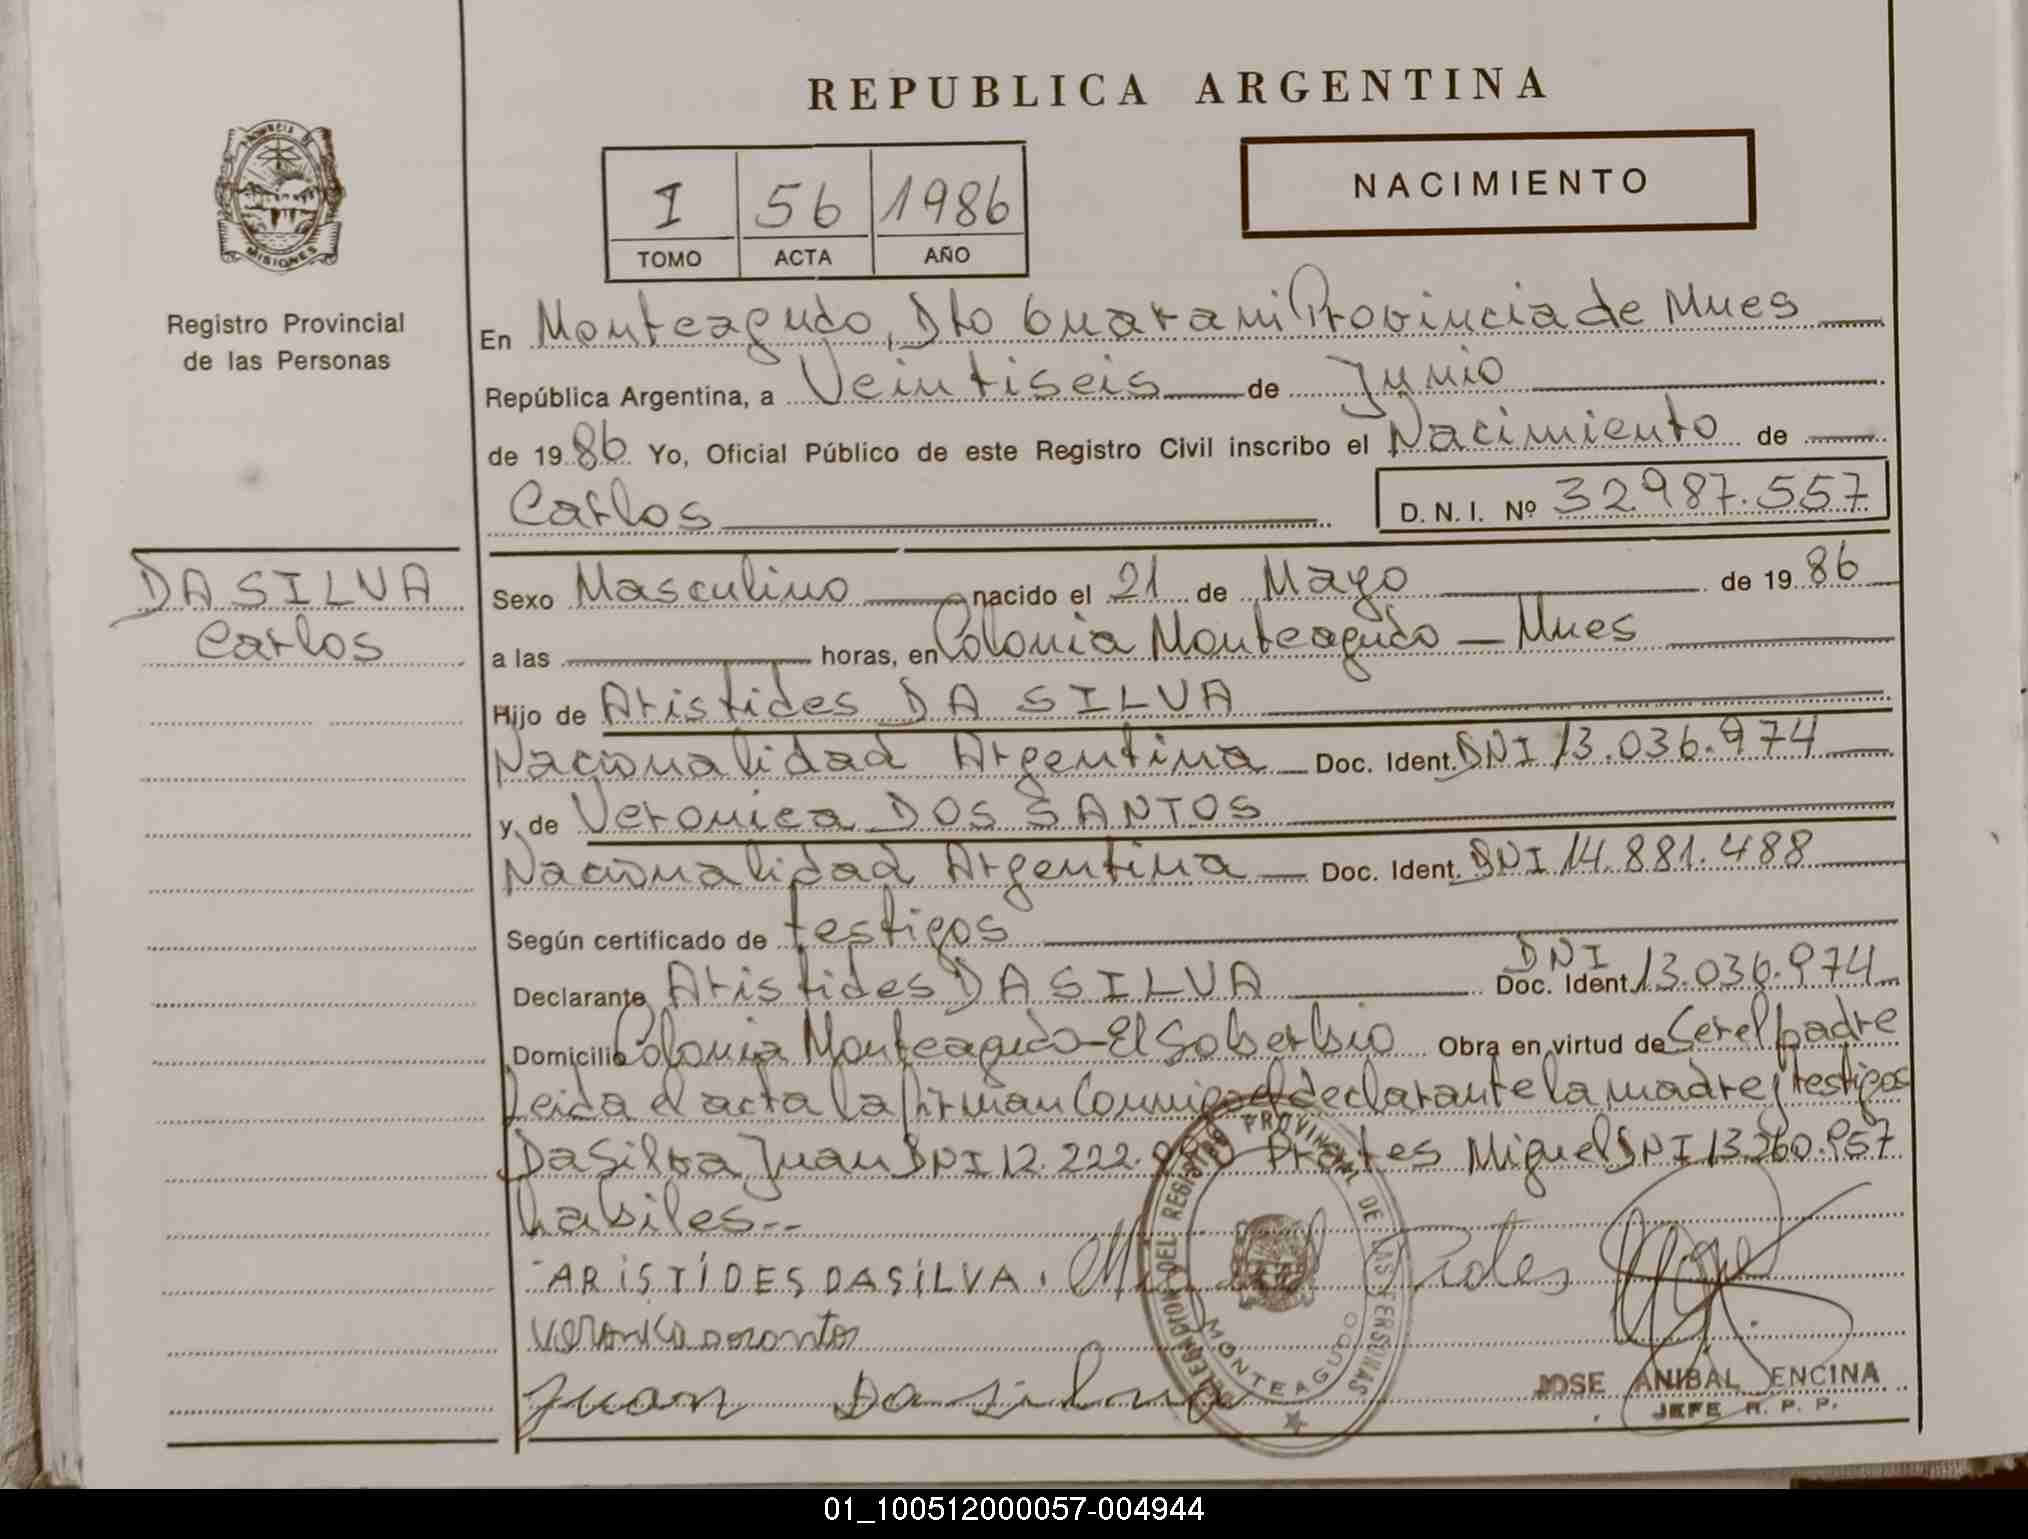 REPUBLICA ARGENTINA
PROVINCIA DE
MISIONES
Registro Provincial
de las Personas
I 56 1986
TOMO ACTA AÑO
NACIMIENTO
En Monteagudo, Dto Guarani Provincia de Mnes
República Argentina, a Veintiseis de Junio
de 1986 Yo, Oficial Público de este Registro Civil inscribo el Nacimiento de
Carlos D. N. I. Nº 32.987.557
DA SILVA
Carlos
Sexo Masculino nacido el 21 de Mayo de 1986
a las horas, en Colonia Monteagudo - Mnes
Hijo de Aristides DA SILVA
Nacionalidad Argentina Doc. Ident. DNI 13.036.974
y de Veronica DOS SANTOS
Nacionalidad Argentina Doc. Ident. DNI 14.881.488
Según certificado de testigos
Declarante Aristides DA SILVA Doc. Ident. DNI 13.036.974
Domicilio Colonia Monteagudo-El Soberbio Obra en virtud de Ser el padre
Leida el acta la firman Conmigo el declarante la madre y testigos
Da Silva Juan DNI 12.222. Prates Miguel DNI 13.260.957
habiles--
ARISTÍDES DA SILVA.
Juan Da Silva
DELEGACION DEL REGISTRO PROVINCIAL DE LAS PERSONAS
MONTEAGUDO
JOSE ANIBAL ENCINA
JEFE R. P. P.
01_100512000057-004944